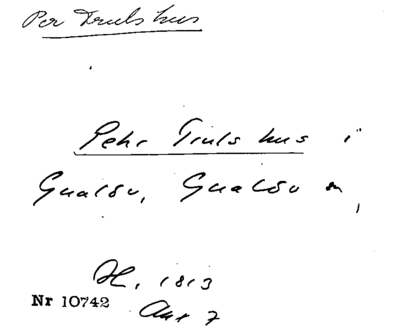 Per Truls hus
Pehr Truls hus i
Gualöv, Gualöv sn,
H, 1813
Nr 10742
Akt 7